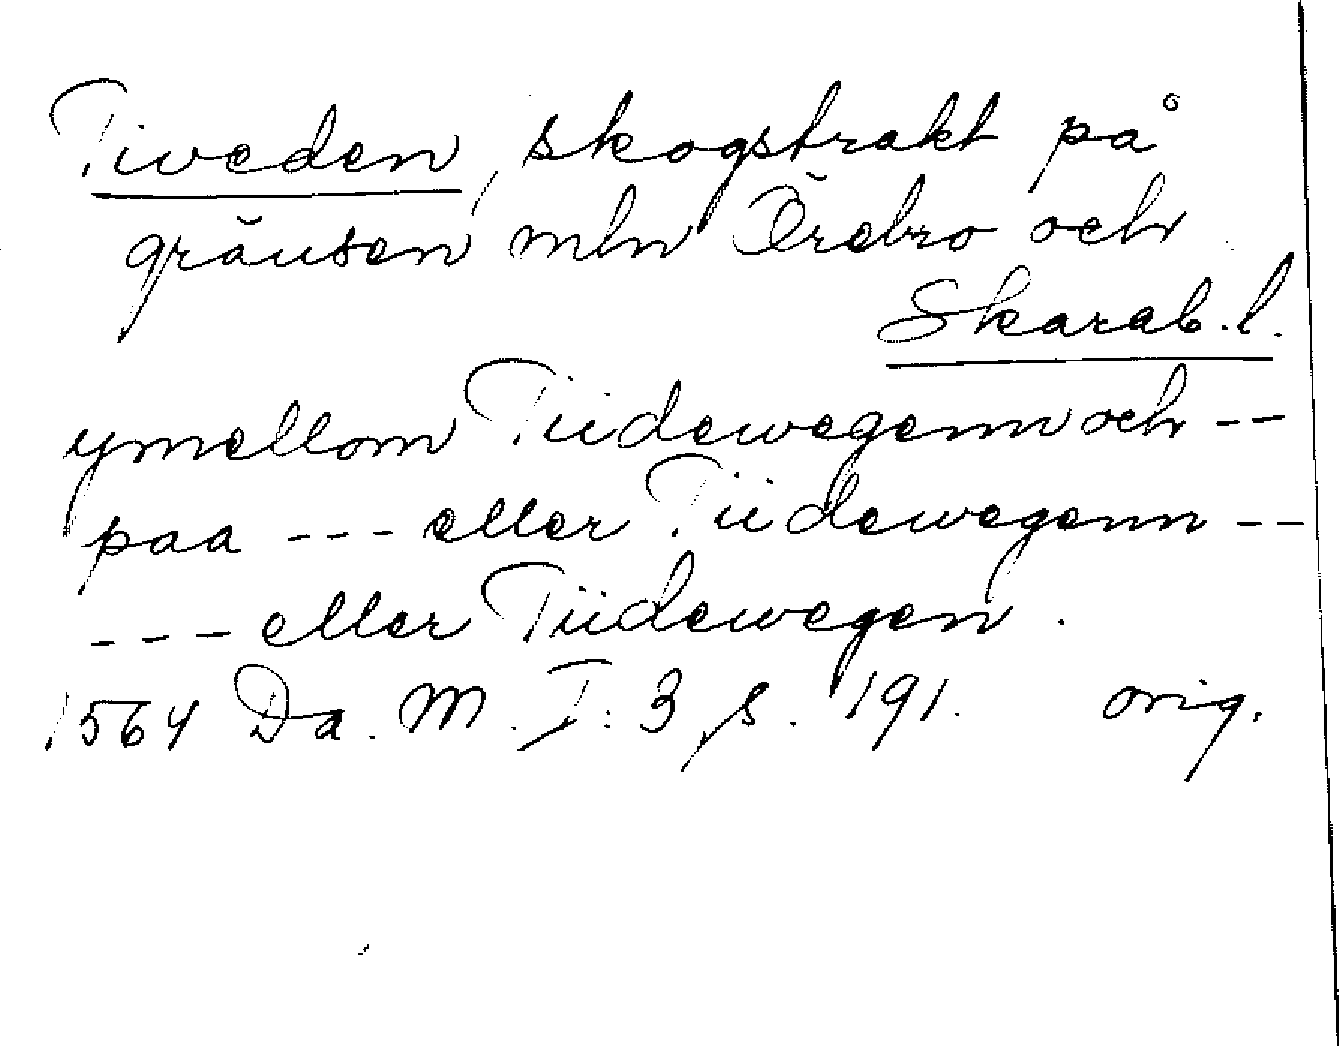 Tiveden, skogstrakt på
gränsen mln Örebro och
Skarab. l.
ymellom Tiidewegenn och --
paa --- eller Tiidewegenn --
--- eller Tiidewegen.
1564 Da. M. I: 3, s. 191. orig.